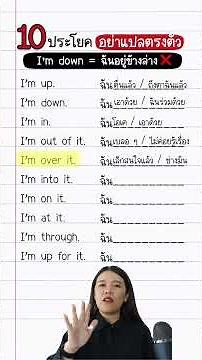 10 ประโยค อย่าแปลตรงตัว
I'm down = ฉันอยู่ข้างล่าง ❌
I'm up. ฉันตื่นแล้ว / ถึงตาฉันแล้ว
I'm down. ฉันเอาด้วย / ฉันร่วมด้วย
I'm in. ฉันโอเค / เอาด้วย
I'm out of it. ฉันเบลอ ๆ / ไม่ค่อยรู้เรื่อง
I'm over it. ฉันเลิกสนใจแล้ว / ช่างมัน
I'm into it. ฉัน
I'm on it. ฉัน
I'm at it. ฉัน
I'm through. ฉัน
I'm up for it. ฉัน